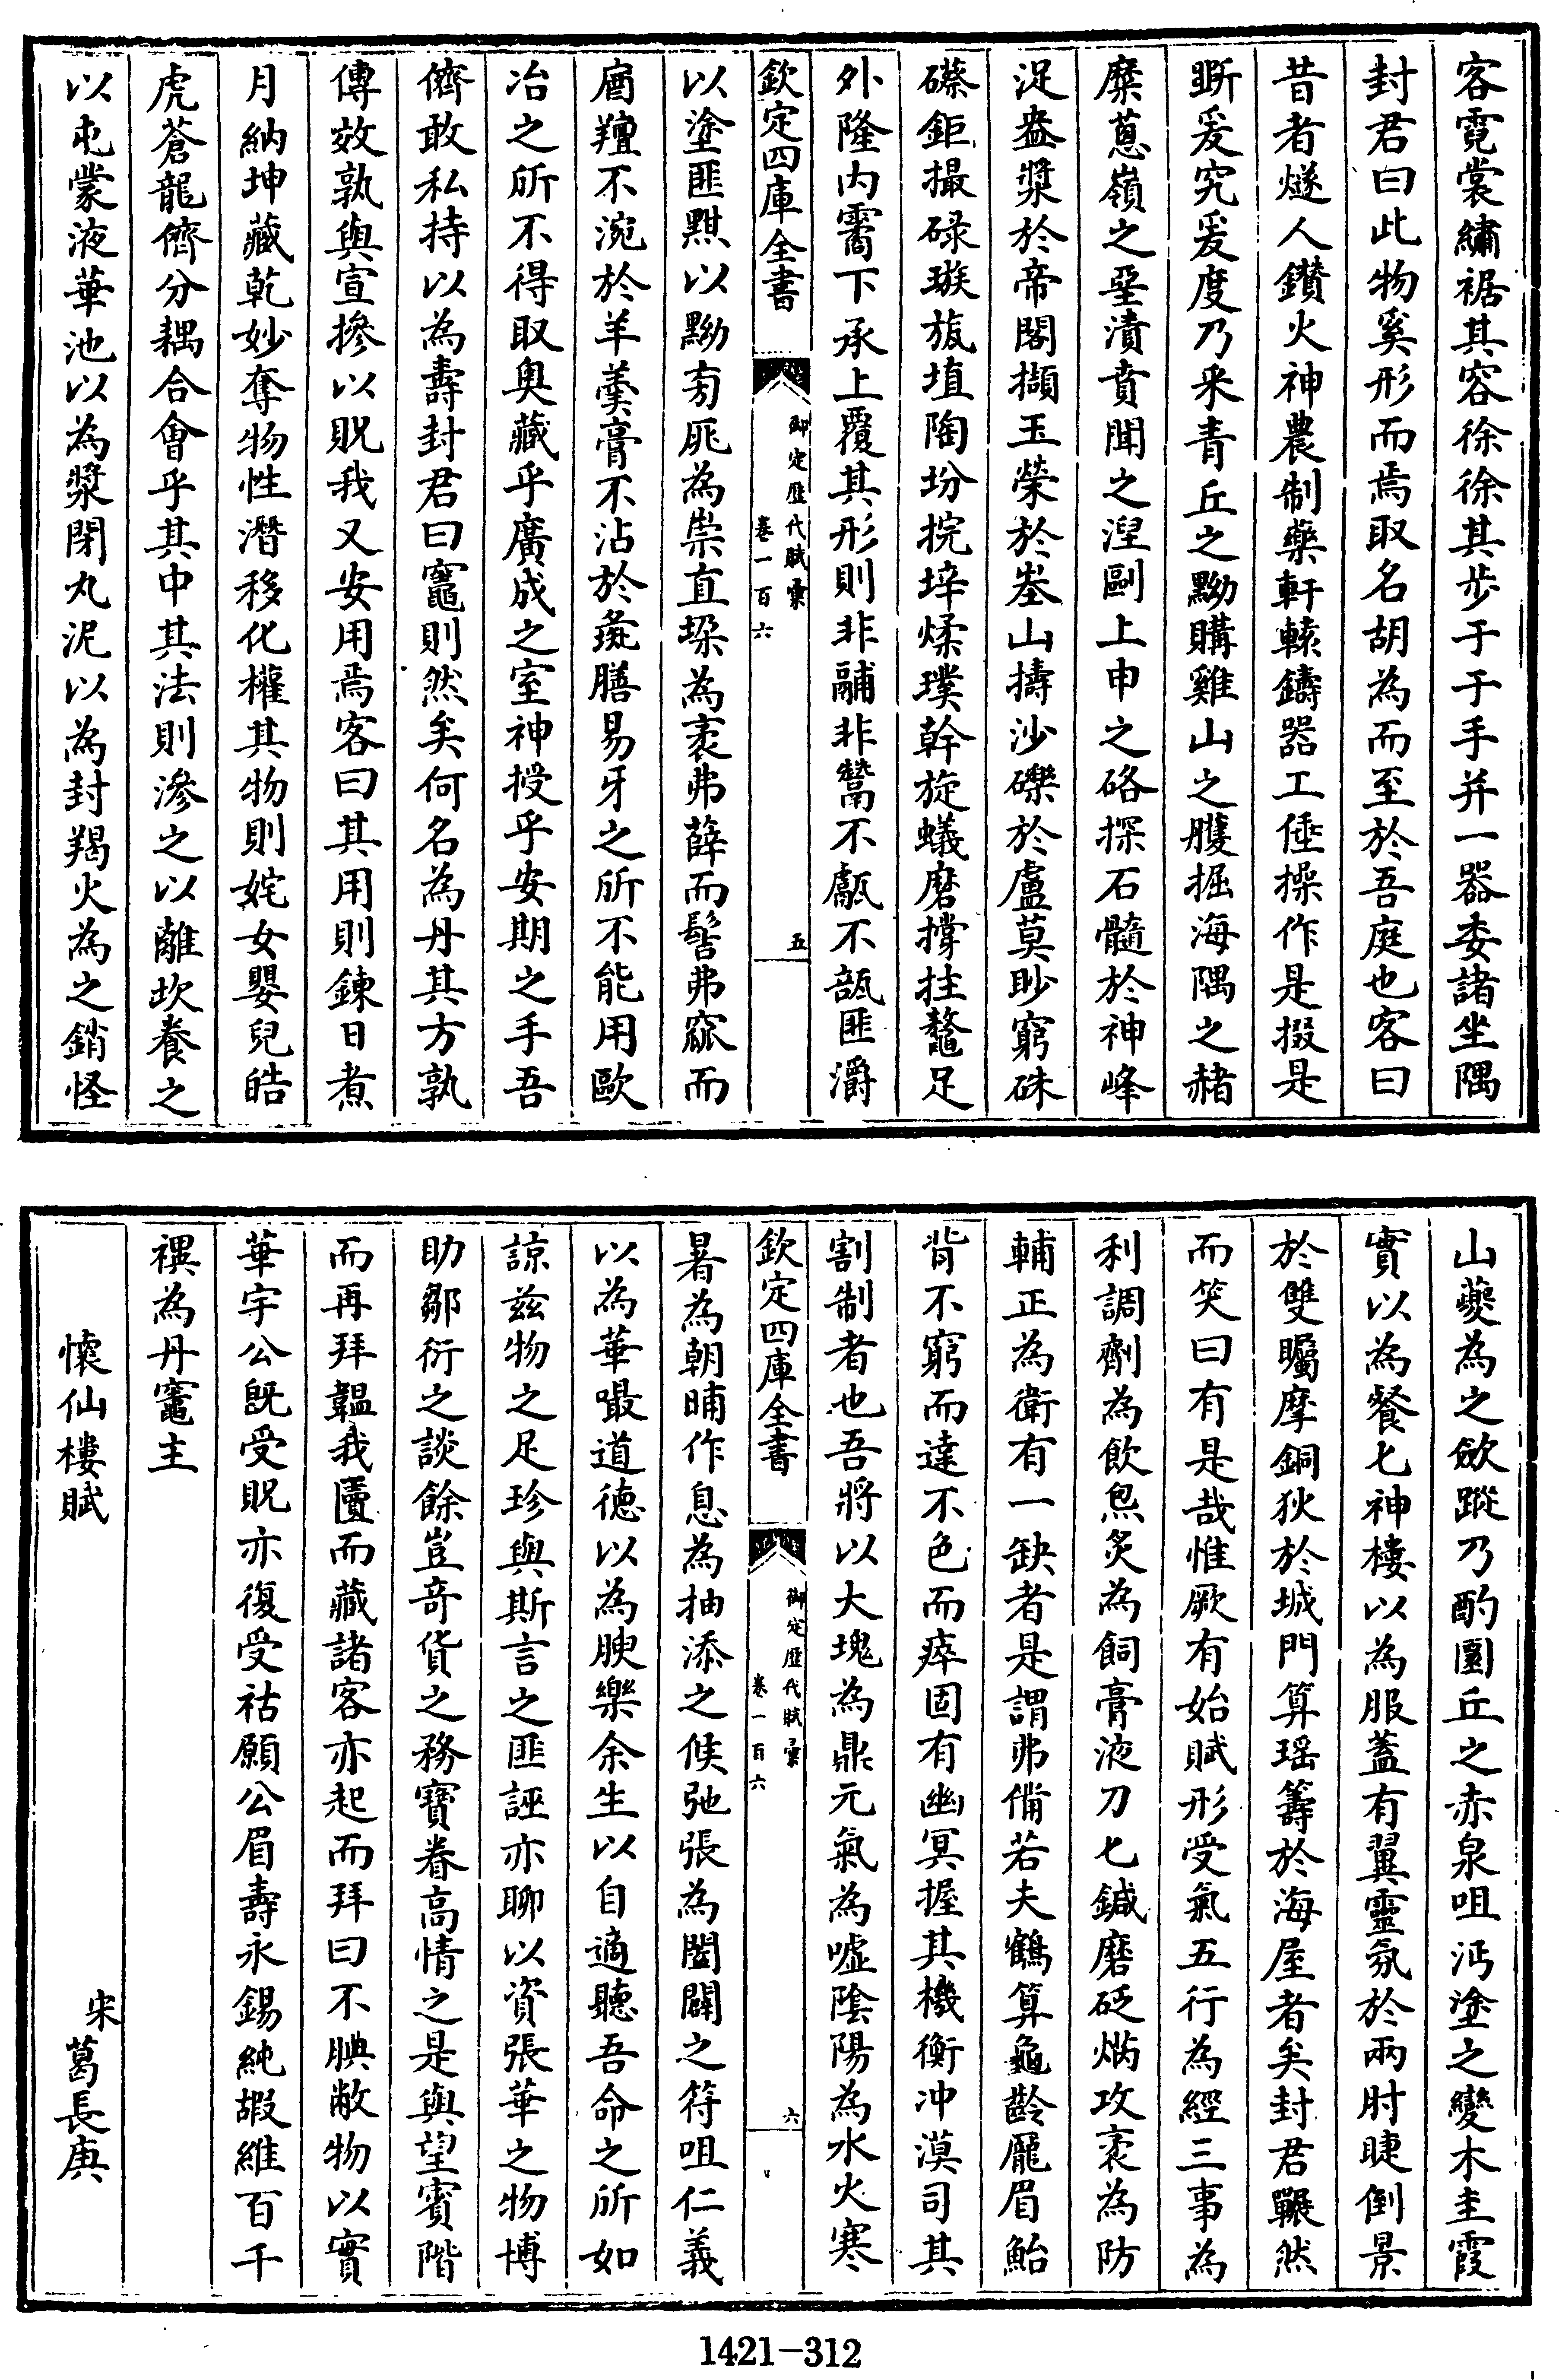 客霓裳繡裾其容徐徐其步于于手并一器委諸坐隅
封君曰此物奚形而焉取名胡為而至於吾庭也客曰
昔者燧人鑽火神農制藥軒轅鑄器工倕操作是掇是
斮爰究爰度乃采青丘之黝購雞山之雘掘海隅之赭
糜蔥嶺之堊漬賁聞之湼剾上申之硌探石髓於神峰
浞盎漿於帝閣擷玉榮於峚山擣沙礫於盧莫眇窮硃
磜鉅撮碌璇旊埴陶坋捖埣煣璞幹旋蟻磨撐拄鼇足
外隆内窵下承上覆其形則非鬴非鬵不甗不瓿匪灂
欽定四庫全書
御定歷代賦彙
卷一百六
五
以塗匪黓以黝匋㡳為崇直垜為袤弗薛而髺弗窳而
㢏羶不涴於羊羹膏不沾於彘膳易牙之所不能用歐
冶之所不得取奥藏乎廣成之室神授乎安期之手吾
儕敢私持以為壽封君曰竈則然矣何名為丹其方孰
傳效孰與宣摻以貺我又安用焉客曰其用則鍊日煮
月納坤藏乾妙奪物性潛移化權其物則姹女嬰兒皓
虎蒼龍儕分耦合會乎其中其法則滲之以離坎養之
以屯蒙液華池以為漿閉丸泥以為封羯火為之銷怪
山夔為之斂蹤乃酌圜丘之赤泉咀沔塗之變木圭霞
實以為餐匕神樓以為服蓋有翼靈氛於兩肘睫倒景
於雙矚摩銅狄於城門算瑶籌於海屋者矣封君囅然
而笑曰有是哉惟厥有始賦形受氣五行為經三事為
利調劑為飲炰炙為飼膏液刀匕鍼磨砭焫攻袤為防
輔正為衛有一缺者是謂弗備若夫鶴算龜齡龎眉鮐
背不窮而達不色而瘁固有幽冥握其機衡冲漠司其
割制者也吾將以大塊為鼎元氣為嘘陰陽為水火寒
欽定四庫全書
御定歷代賦彙
卷一百六
六
暑為朝晡作息為抽添之候弛張為闔闢之符咀仁義
以為華嘬道徳以為腴樂余生以自適聽吾命之所如
諒兹物之足珍與斯言之匪誣亦聊以資張華之物博
助鄒衍之談餘豈奇貨之務寶眷高情之是與望賓階
而再拜韞我匵而藏諸客亦起而拜曰不腆敝物以實
華宇公既受貺亦復受祜願公眉壽永錫純嘏維百千
禩為丹竈主
懷仙樓賦
宋葛長庚
1421-312